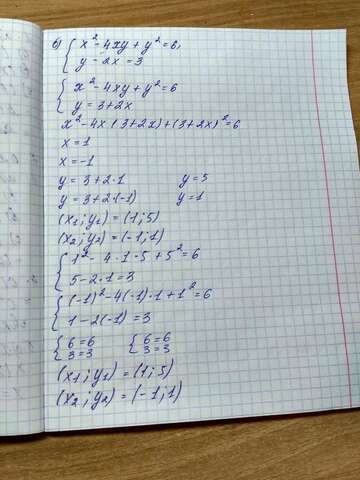 б) { x² - 4xy + y² = 6,
y - 2x = 3
{ x² - 4xy + y² = 6
y = 3 + 2x
x² - 4x · (3 + 2x) + (3 + 2x)² = 6
x = 1
x = -1
y = 3 + 2 · 1 y = 5
y = 3 + 2 · (-1) y = 1
(x₁; y₁) = (1; 5)
(x₂; y₂) = (-1; 1)
{ 1² - 4 · 1 · 5 + 5² = 6
5 - 2 · 1 = 3
{ (-1)² - 4(-1) · 1 + 1² = 6
1 - 2(-1) = 3
{ 6 = 6 { 6 = 6
3 = 3 3 = 3
(x₁; y₁) = (1; 5)
(x₂; y₂) = (-1; 1)